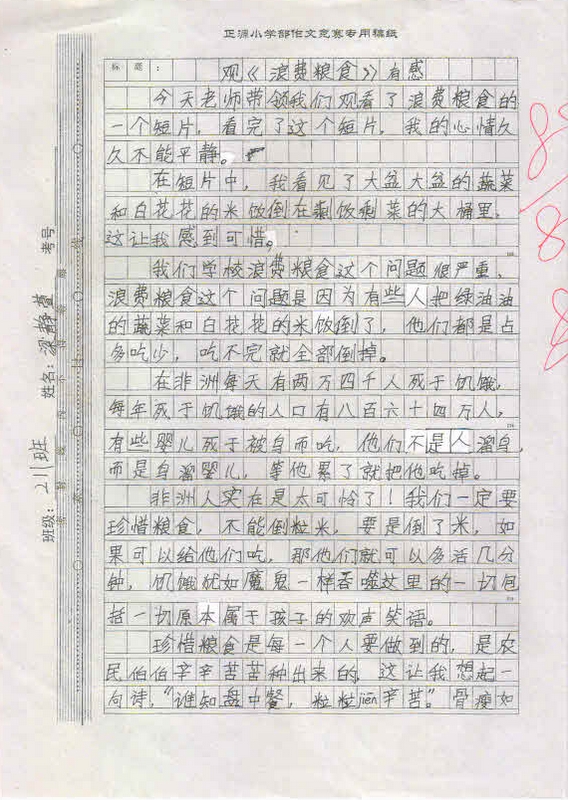 正源小学部作文竞赛专用稿纸
标 题：
观《浪费粮食》有感
今天老师带领我们观看了浪费粮食的
一个短片，看完了这个短片，我的心情久
久不能平静。
在短片中，我看见了大盆大盆的蔬菜
和白花花的米饭倒在剩饭剩菜的大桶里，
这让我感到可惜。
我们学校浪费粮食这个问题很严重，
浪费粮食这个问题是因为有些人把绿油油
的蔬菜和白花花的米饭倒了，他们都是占
多吃少，吃不完就全部倒掉。
在非洲每天有两万四千人死于饥饿，
每年死于饥饿的人口有八百六十四万人，
有些婴儿死于被自而吃，他们不是人溜自，
而是自溜婴儿，等他累了就把他吃掉。
非洲人实在是太可怜了！我们一定要
珍惜粮食，不能倒粒米，要是倒了米，如
果可以给他们吃，那他们就可以多活几分
钟，饥饿犹如魔鬼一样吞噬这里的一切包
括一切原本属于孩子的欢声笑语。
珍惜粮食是每一个人要做到的，是农
民伯伯辛辛苦苦种出来的，这让我想起一
句诗，“谁知盘中餐，粒粒jiēn辛苦。”骨瘦如
班级：
班
姓名：梁静萱
考号